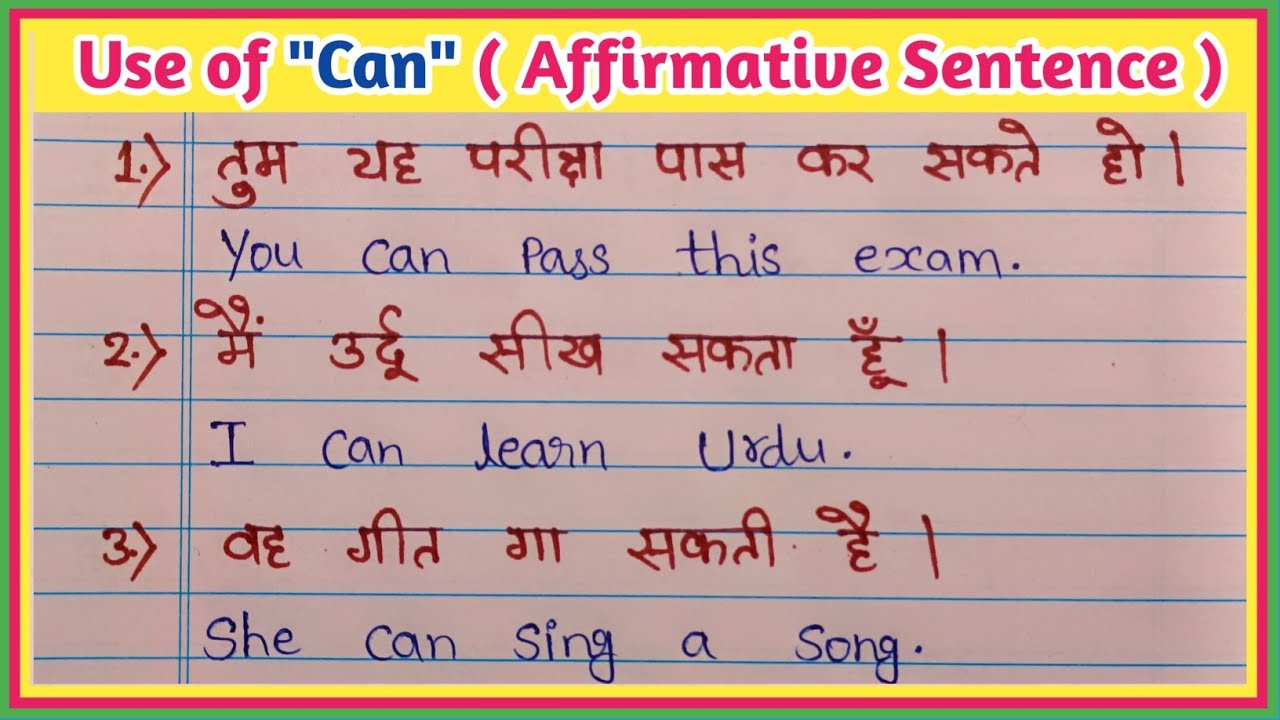 Use of "Can" ( Affirmative Sentence )
1.) तुम यह परीक्षा पास कर सकते हो।
You can pass this exam.
2.) मैं उर्दू सीख सकता हूँ।
I can learn Urdu.
3.) वह गीत गा सकती है।
She can sing a song.